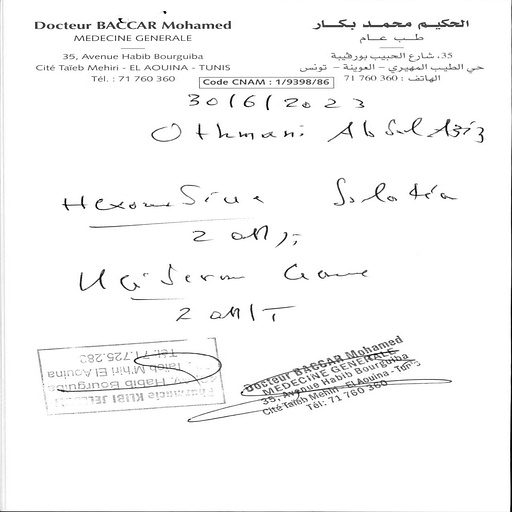 Docteur BACCAR Mohamed
MEDECINE GENERALE
35, Avenue Habib Bourguiba
Cité Taïeb Mehiri - EL AOUINA - TUNIS
Tél. : 71 760 360
الحكيم محمد بكار
طب عام
35، شارع الحبيب بورقيبة
حي الطيب المهيري - العوينة - تونس
الهاتف : 360 760 71
Code CNAM : 1/9398/86
30/6/2023
Othmani Abdelaziz
Hexomedine Solution
Crème
Pharmacie KLIBI JELLOUL
Av. Habib Bourguiba
Taïeb M'hiri El Aouina
Tél. 71.725.282
Docteur BACCAR Mohamed
MEDECINE GENERALE
35, Avenue Habib Bourguiba
Cité Taïeb Mehiri - EL Aouina - Tunis
Tél: 71 760 360